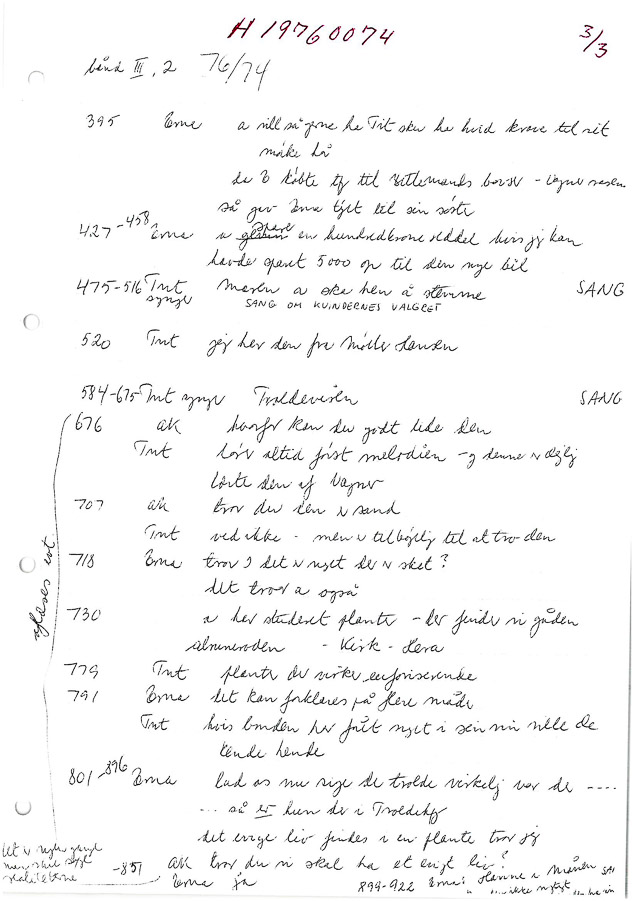 H 19760074
3/3
bånd III, 2 76/74
395 Erna a vill så gerne ha Tit sku ha hvid krave til sit
mørke hår
da købte tøj til
så gav Erna tøjet til sin søster
427-458 Erna a spare en hundredkrone seddel hvis jeg kan
havde sparet 5000 op til den nye bil
475-516 Tnt synger Maren a ska hen å stemme SANG
SANG OM KVINDERNES VALGRET
520 Tnt jeg har den fra Møller Hansen
584-675 Tnt synger Troldevisen SANG
676 ak hvorfor kan du godt lide den
Tnt lør altid først melodien - og denne er dejlig
lærte den af Vagner
707 ak tror du den er sand
Tnt ved ikke - men er tilbøjelig til at tro den
718 Erna tror I det er noget der er sket?
det tror a også
730 a har studeret planter - der finder vi gåden
alruneroden - Kirk - Hera
779 Tnt planter der virker euforiserende
791 Erna det kan forklares på flere måder
Tnt hvis bonden har fået noget i sin vin ville de
tænde hende
801-896 Erna lad os nu sige de trolde virkelig var de ....
... så er hun der i Troldehøj
det evige liv findes i en plante tror jeg
-851 ak tror du vi skal ha et evigt liv?
Erna ja
899-922 Erna: Hanne i Månen